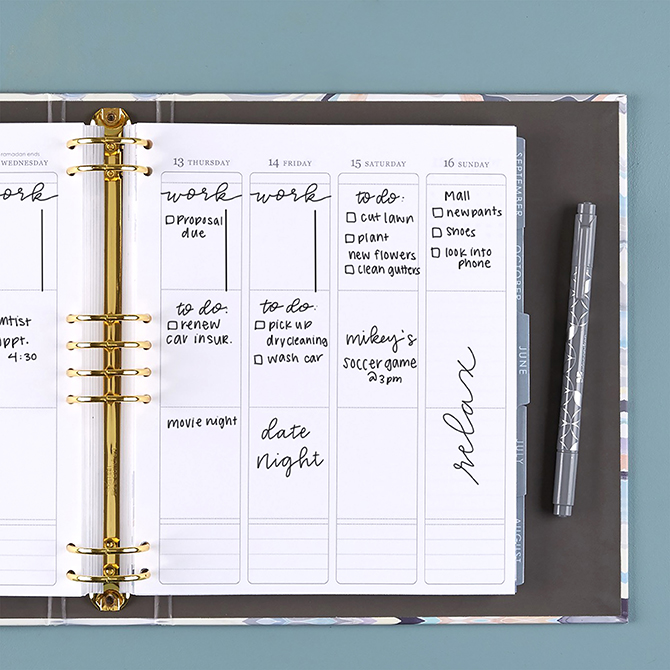 ramadan ends
WEDNESDAY
ork
ntist
ppt.
4:30
13 THURSDAY
work
☐ Proposal
due
to do:
☐ renew
car insur.
movie night
14 FRIDAY
work
to do:
☐ pick up
drycleaning
☐ wash car
date
night
15 SATURDAY
to do:
☐ cut lawn
☐ plant
new flowers
☐ clean gutters
mikey's
soccer game
@3pm
16 SUNDAY
Mall
☐ new pants
☐ Shoes
☐ look into
phone
relax
SEPTEMBER
OCTOBER
JUNE
JULY
AUGUST